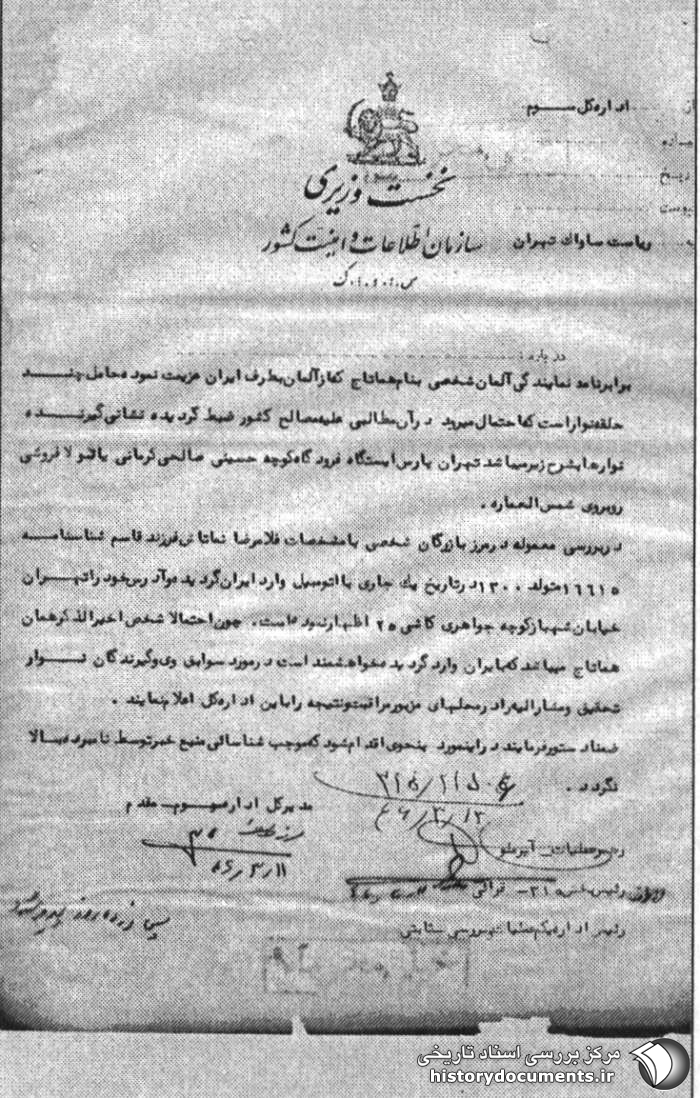 اداره کل سوم
نخست وزیری
سازمان اطلاعات و امنیت کشور
ریاست ساواک تهران
س.ا.و.ا.ک
درباره :
برابر نامه نمایندگی آلمان شخصی بنام هماتاج که از آلمان بطرف ایران عزیمت نموده حامل چند
حلقه نوار است که احتمال میرود در آن مطالبی علیه مصالح کشور ضبط گردیده نشانی گیرنده
نوارها بشرح زیر میباشد تهران پارس ایستگاه فرودگاه کوچه حسینی صالحی کرمانی یا فولا فروشی
روبروی شمس العماره .
در بررسی معموله در مرز بازرگان شخصی با مشخصات غلامرضا فرزند قاسم شناسنامه
۱۶۶۱۵ متولد ۱۳۰۰ در تاریخ یک جاری با اتومبیل وارد ایران گردیده و آدرس خود را تهران
خیابان شهباز کوچه جواهری کاشی ۲۵ اظهار نموده است . چون احتمالا شخص اخیرالذکر همان
هماتاج میباشد که بایران وارد گردیده خواهشمند است در مورد سوابق وی و گیرندگان نوار
تحقیق و مشارالیه را در محلهای مزبور مراقبت و نتیجه را باین اداره کل اعلام نمایند .
ضمنا دستور فرمایند در اینمورد بنحوی اقدام شود که موجب شناسائی منبع خبر توسط نامبرده بالا
نگردد .
مدیر کل اداره سوم . مقدم
رئیس بخش ۳۱۲ -
رئیس اداره یکم عملیات و بررسی ثنایتی
مرکز بررسی اسناد تاریخی
historydocuments.ir